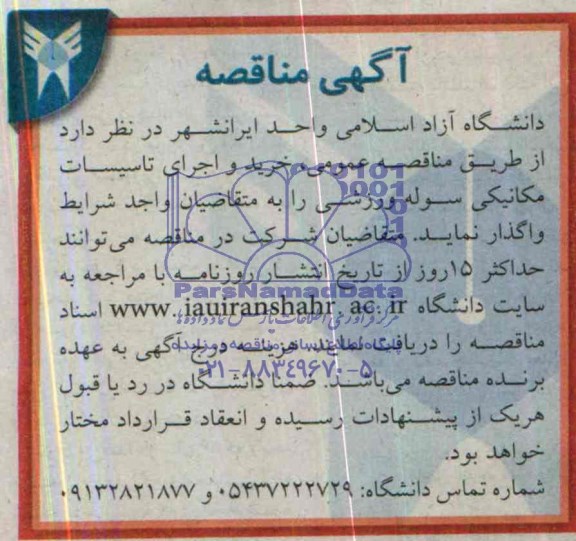 آگهی مناقصه
دانشگاه آزاد اسلامی واحد ایرانشهر در نظر دارد
از طریق مناقصه عمومی خرید و اجرای تاسیسات
مکانیکی سوله ورزشی را به متقاضیان واجد شرایط
واگذار نماید. متقاضیان شرکت در مناقصه می‌توانند
حداکثر ۱۵روز از تاریخ انتشار روزنامه با مراجعه به
ParsNamadData
سایت دانشگاه www.iauiranshahr.ac.ir اسناد
مناقصه را دریافت نمایند. هزینه درج آگهی به عهده
برنده مناقصه می‌باشد. ضمنا دانشگاه در رد یا قبول
۰۲۱-۸۸۳۴۹۶۷۰-۵
هریک از پیشنهادات رسیده و انعقاد قرارداد مختار
خواهد بود.
شماره تماس دانشگاه: ۰۵۴۳۷۲۲۲۷۲۹ و ۰۹۱۳۲۸۲۱۸۷۷